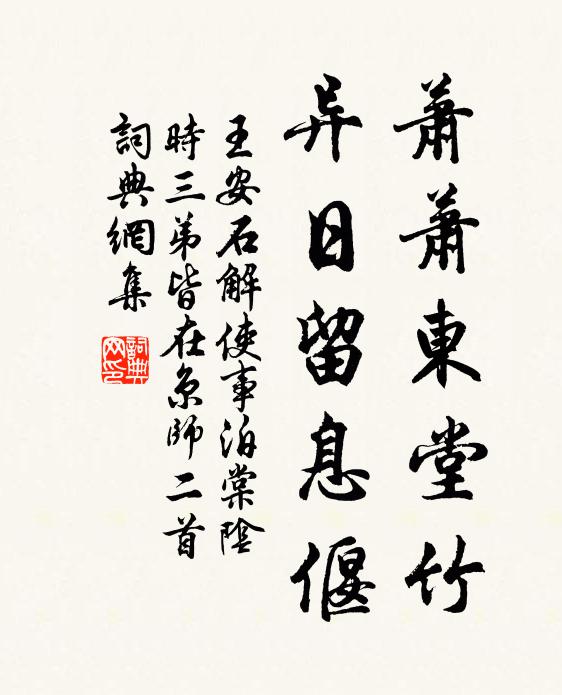 蕭蕭東堂竹
异日留息偃
王安石解使事泊棠陰
時三弟皆在京師二首
詞典網集
詞典
网印